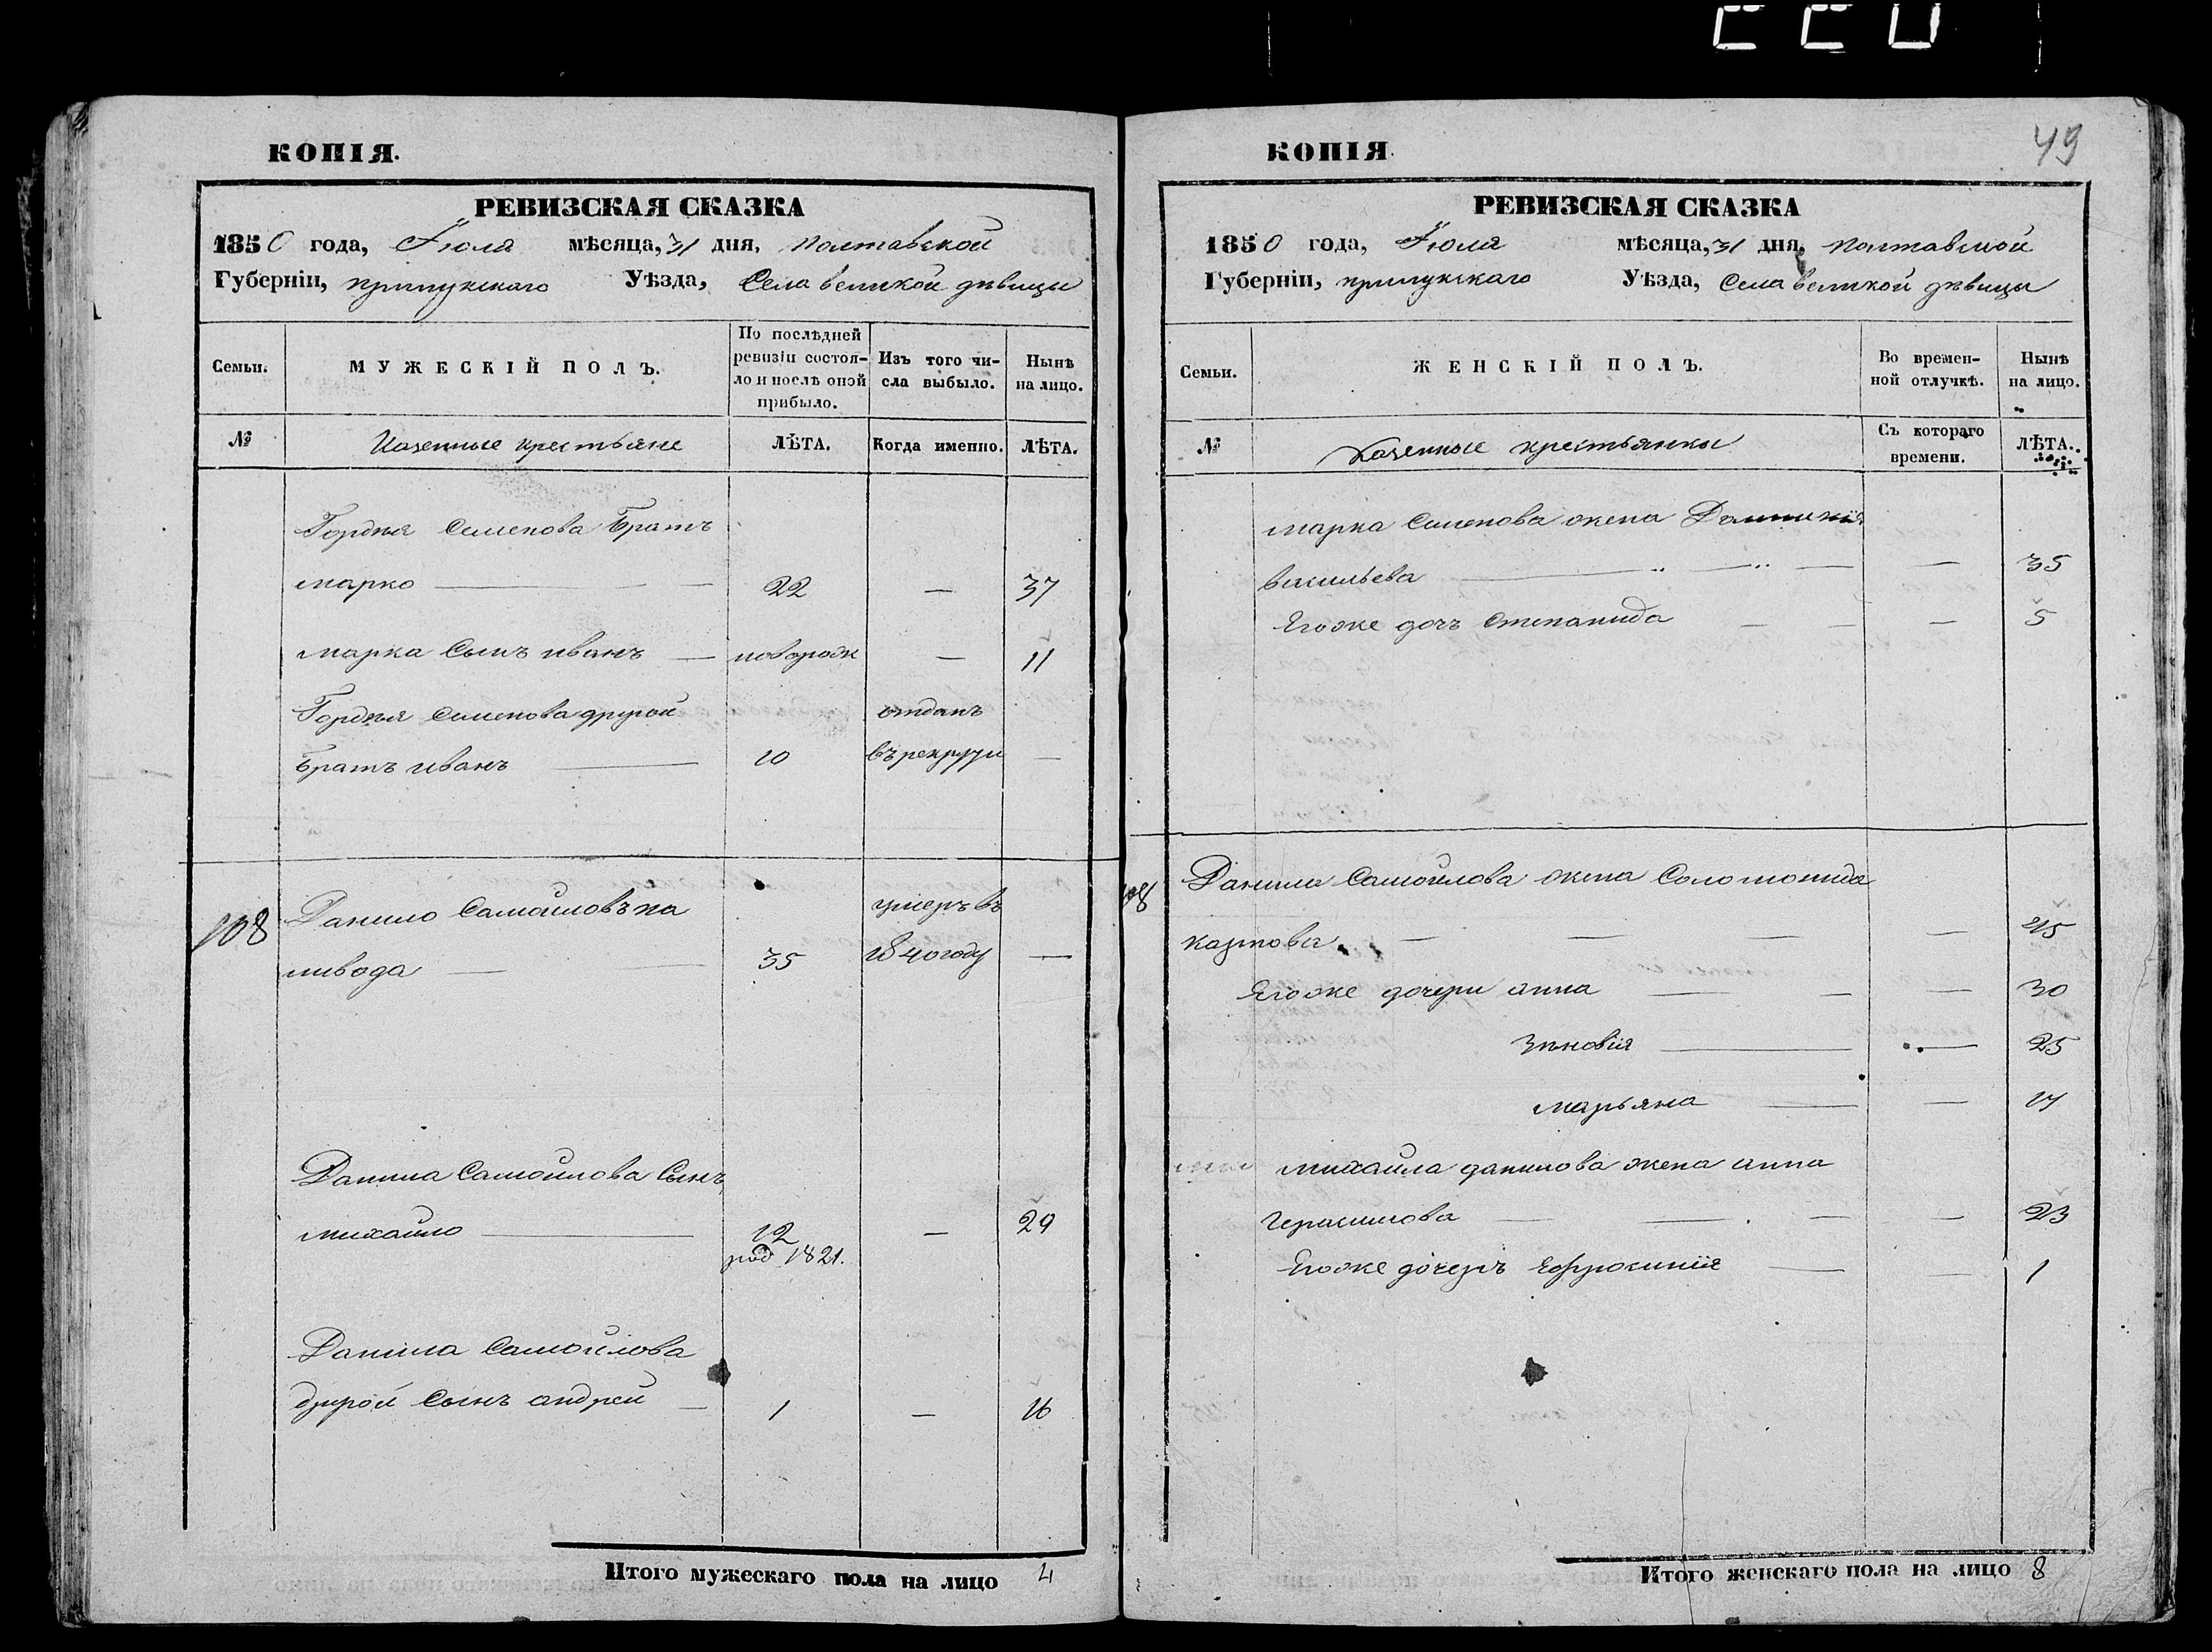 КОПІЯ.
РЕВИЗСКАЯ СКАЗКА
1850 года, Іюля мѣсяца, 31 дня, полтавской
Губерніи, прилукскаго Уѣзда, Села великой дѣвицы
Семьи.
МУЖЕСКІЙ ПОЛЪ.
По послѣдней
ревизіи состоя-
ло и послѣ оной
прибыло.
Изъ того чи-
сла выбыло.
Нынѣ
на лицо.
№
Казенные крестьяне
ЛѢТА.
Когда именно.
ЛѢТА.
Гордѣя Семенова Братъ
марко 22 — 37
марка Сынъ иванъ — новорож — 11
Гордѣя Семенова другой отданъ
Братъ иванъ 10 въ рекруты —
108 Данило Самойловъ па умеръ въ
ливода — 35 1840 году —
Данила Самойлова Сынъ
михайло 12 — 29
род 1821.
Данила Самойлова
другой Сынъ андрей — 1 — 16
Итого мужескаго пола на лицо 4
КОПІЯ
49
РЕВИЗСКАЯ СКАЗКА
1850 года, Іюля мѣсяца, 31 дня, полтавской
Губерніи, прилукскаго Уѣзда, Села великой дѣвицы
Семьи.
ЖЕНСКІЙ ПОЛЪ.
Во времен-
ной отлучкѣ.
Нынѣ
на лицо.
№
Казенные крестьянки
Съ котораго
времени.
ЛѢТА.
марка Семенова жена
васильева — 35
Егоже дочь Степанида — 5
108 Данила Самойлова жена Соломонида
карпова — 45
Егоже дочери анна — 30
Зѣновія — 25
марьяна —
михаила данилова жена анна
Герасимова — 23
Егоже дочерь Ефросинія — 1
Итого женскаго пола на лицо 8